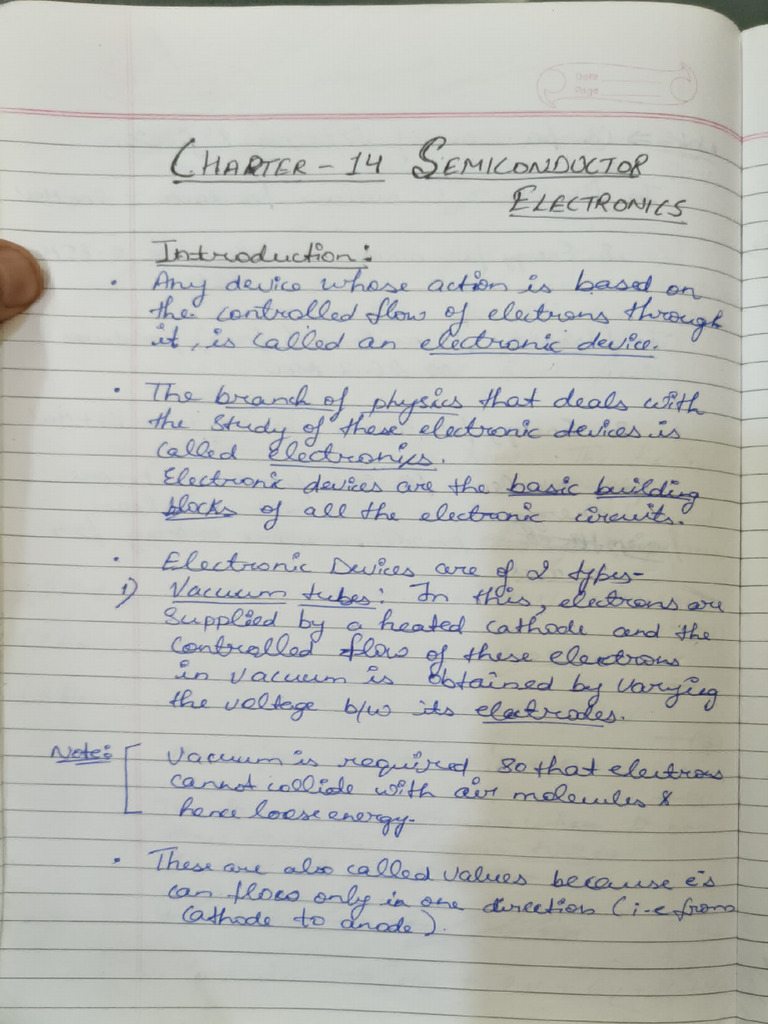 Date
Page
CHAPTER – 14 SEMICONDUCTOR
ELECTRONICS
Introduction:
• Any device whose action is based on
the controlled flow of electrons through
it, is called an electronic device.
• The branch of physics that deals with
the study of these electronic devices is
called electronics.
Electronic devices are the basic building
blocks of all the electronic circuits.
• Electronic Devices are of 2 types-
1) Vacuum tubes: In this, electrons are
supplied by a heated cathode and the
controlled flow of these electrons
in vacuum is obtained by varying
the voltage b/w its electrodes.
Note: Vacuum is required so that electrons
cannot collide with air molecules &
hence loose energy.
• These are also called values because e's
can flow only in one direction (i-e from
cathode to anode).